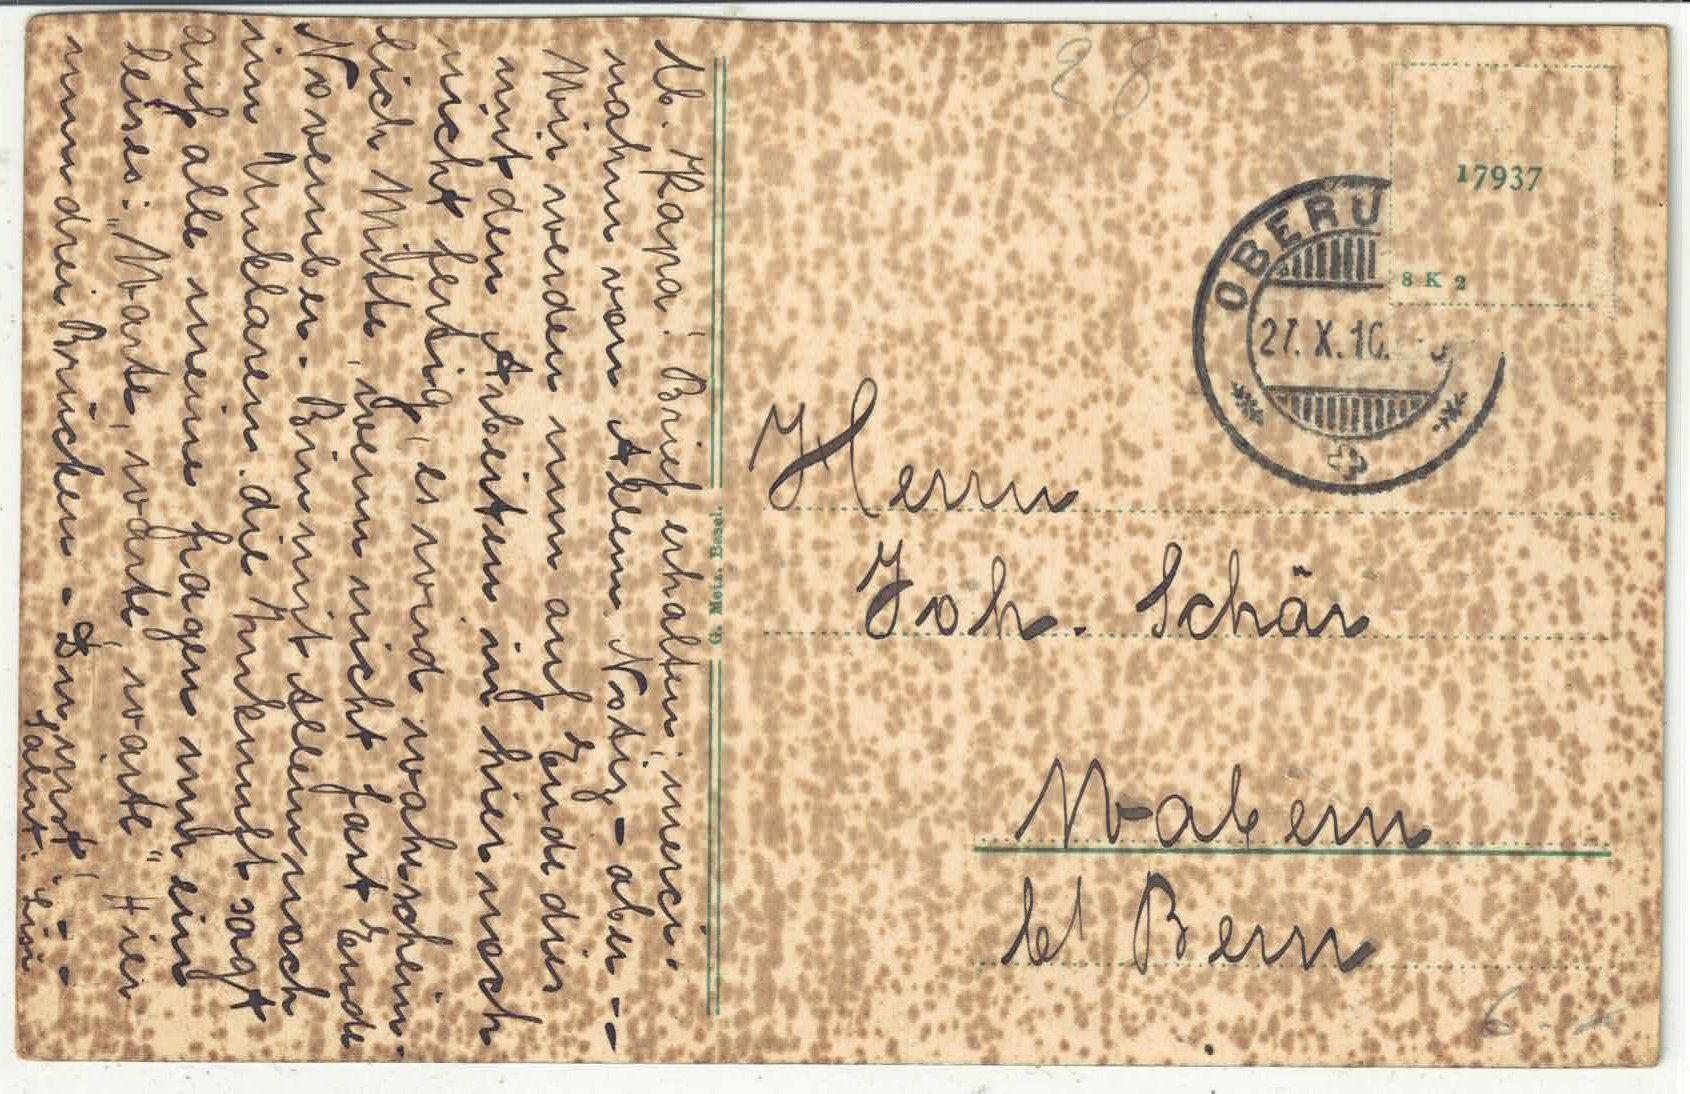 lb. Papa! Brief erhalten, merci.
nahm von Allem Notiz - aber --
Wir werden nun auf Ende dies
mit den Arbeiten auf hier noch
nicht fertig, es wird wahrschein-
lich Mitte, wenn nicht fast Ende
November. Bin mit Allem noch
im Unklaren. die Zukunft sagt
auf alle meine Fragen nur ein
leises: "Warte, warte, warte" Hier
nun drei Brücken -
Salut. Lisi
G. Metz, Basel.
28
17937
8 K 2
OBERU
27. X. 16.
Herrn
Joh. Schär
Wabern
b/ Bern
6.-